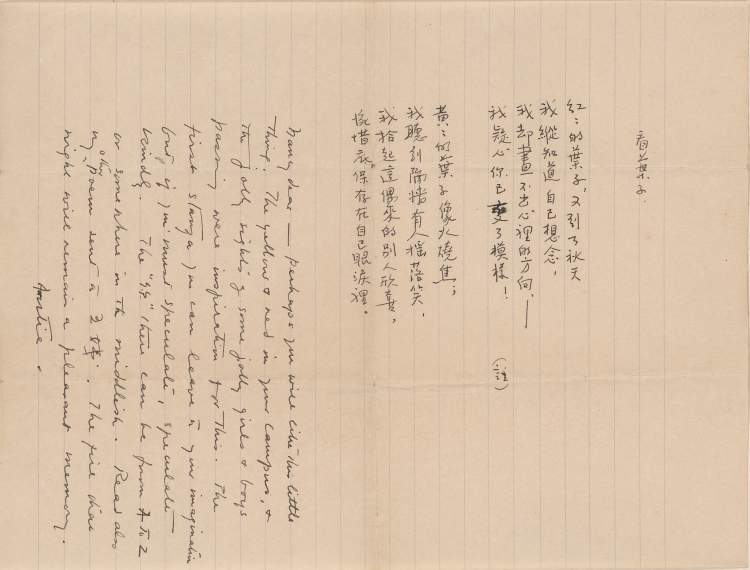 看葉子
紅〻的葉子,又到了秋天
我縱知道自己想念,
我却畫不出心裡的方向,——
我疑心你已變了模樣! (註)
黃〻的葉子像火燒焦;
我聽到隔墻有人搖落笑,
我拾起這偶來的別人欣喜,
惋惜底保存在自己眼淚裡。
Nancy dear — perhaps you will like this little
thing. The yellow & red in your campus, &
the jolly sights of some jolly girls & boys
passing were inspiration for this. The
first stanza you can leave to your imagination
but, if you must speculate, speculate
kindly. The "你" there can be from A to Z
or somewhere in the middlish. Read also
my other poem sent to. The fire chat
night will remain a pleasant memory.